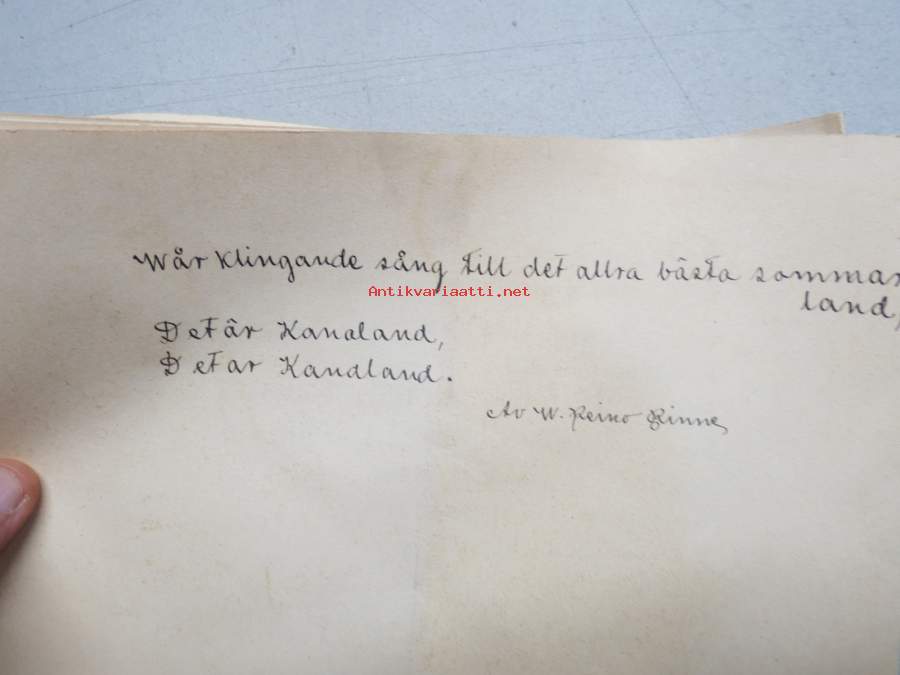 Wår klingande sång till det allra bästa sommar
land,
Antikvariaatti.net
Det är Kanaland,
Det ar Kanaland.
Av W. Reino Rinne